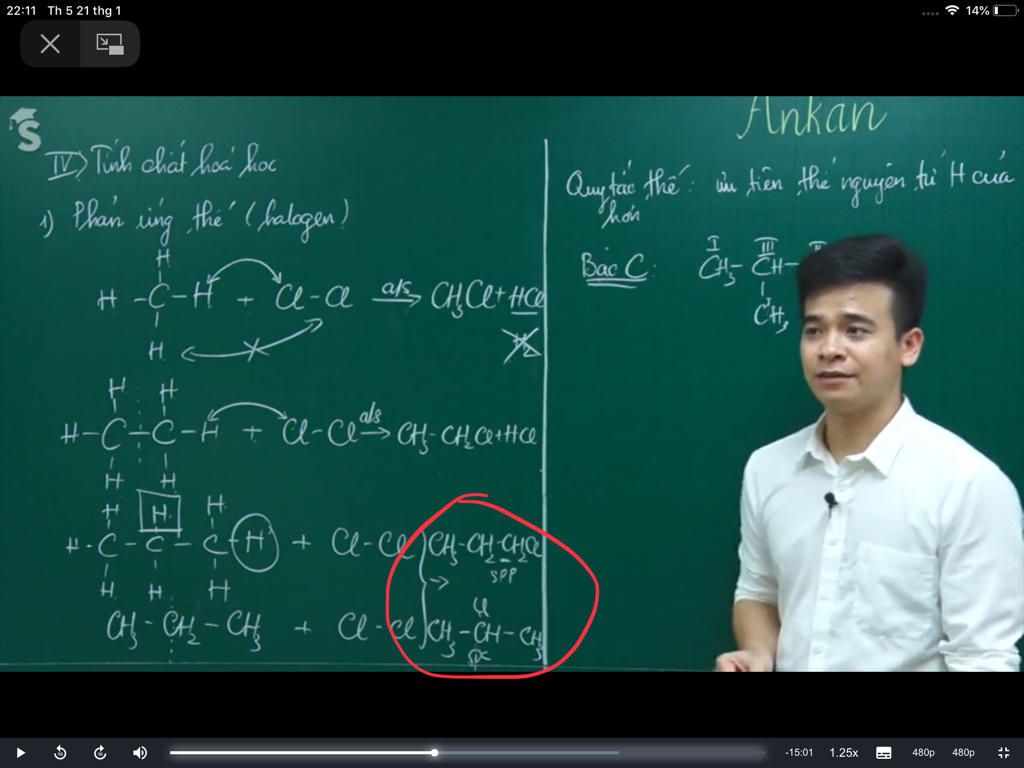 22:11 Th 5 21 thg 1
14%
S
Ankan
IV) Tính chất hoá học
1) Phản ứng thế (halogen)
H
H - C - H + Cl - Cl as→ CH₃Cl + HCl
H
H H
H - C - C - H + Cl - Cl as→ CH₃ - CH₂Cl + HCl
H H
H H H
H - C - C - C - H + Cl - Cl → CH₃ - CH₂ - CH₂Cl
spp
H H H
Cl
CH₃ - CH₂ - CH₃ + Cl - Cl CH₃ - CH - CH₃
spc
Quy tắc thế: ưu tiên thế nguyên tử H của
hơn
Bậc C:
I III II
CH₃ - CH -
CH₃
-15:01 1.25x 480p 480p